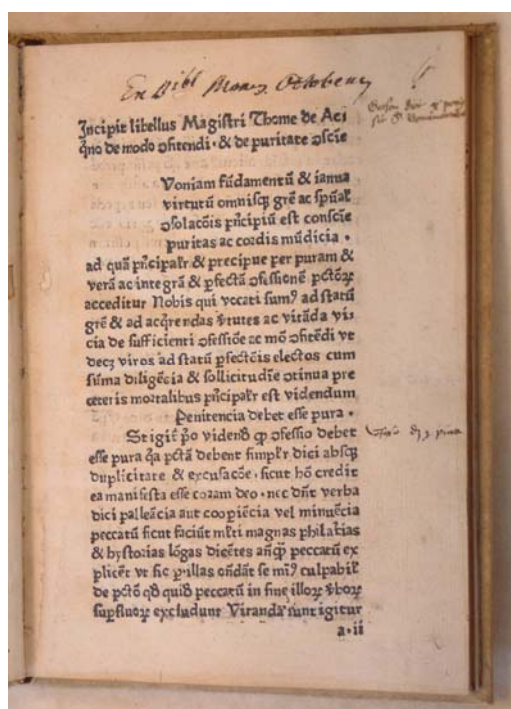 Ex Bibl Monrÿ Ottobenrÿ
Incipit libellus Magistri Thome de Aci
q̃no de modo ꝯfitendi · & de puritate ꝯscie
Voniam fũdamentũ & ianna
virtutũ omnisqꝫ grẽ ac spũal̃
ꝯsolacõis pñcipiũ est conscie
puritas ac cordis mũdicia ·
ad quã pñcipal̃r & precipue per puram &
verã ac integrã & ꝑfectã ꝯfessionẽ pctõꝝ
acceditur Nobis qui vocati sumꝰ ad statũ
grẽ & ad acq̃rendas v̾tutes ac vitãda vi⸗
cia de sufficienti ꝯfessiõe ac mõ ꝯfitẽdi vt
decꝫ viros ad statũ ꝑfectõis electos cum
sũma diligẽcia & sollicitudĩe ꝯtinua pre
ceteris mortalibus pñcipal̃r est videndum
Penitencia debet esse pura ·
St igit̃ p̃o videnð qꝫ ꝯfessio debet
esse pura q̃a pctã debent simpl̃r dici absqꝫ
duplicitate & excusacõe · sicut hõ credit
ea manifesta esse coram deo · nec dñt verba
dici palleãcia aut coopiẽcia vel minuẽcia
peccatũ sicut faciũt ml̃ti magnas philatias
& hystorias lõgas dicẽtes añqꝫ peccatũ ex
plicẽt vt sic ꝑ illas oñdãt se miꝰ culpabil̃
de pctõ qð quið peccatũ in fine illoꝝ v̾boꝝ
suꝑfluoꝝ excludunt Vitanda sunt igitur
a·ii